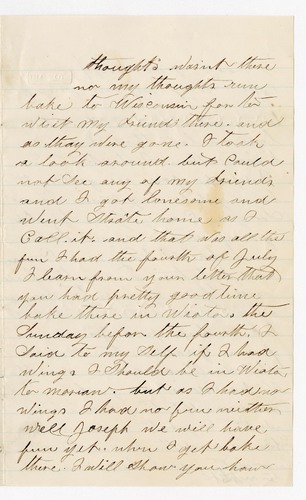 thoughts wasnt there
no my thoughts run
bake to Wisconsin for to
visit my friends there. and
as thay were gone. I took
a look around but Could
not See any of my friends
and I got lonesome and
went Strate home as I
Call it. and that was all the
fun I had the fourth of July
I learn from your letter that
you had pretty good time
bake there in Wiota the
Sunday befor the fourth. I
Said to my Self if I had
wings I Should be in Wiota
to morian. but as I had no
wings I had no fun neither
well Joseph we will have
fun yet. when I get bake
there. I will Show you how